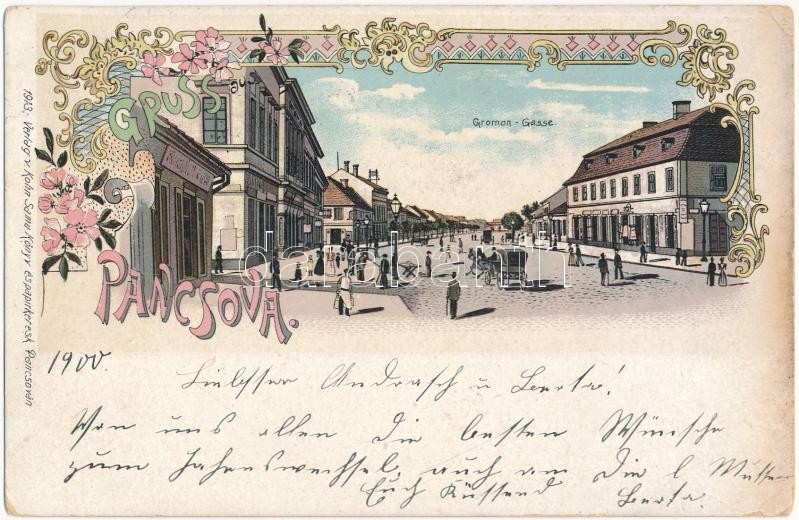 GRUSS
PANCSOVA.
Gromon - Gasse.
darabanth
1913. Verlag v. Kohn Samu Könyv és papirkeresk. Pancsován
1900.
Liebster Andrasch u Berta!
Von uns allen die besten Wünsche
zum Jahreswechsel, auch an die l Mutter
Euch Küssend Berta.